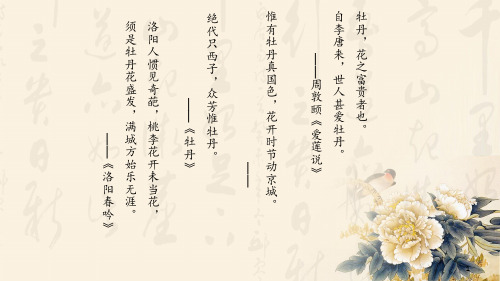 牡丹，花之富贵者也。
自李唐来，世人甚爱牡丹。
——周敦颐《爱莲说》
惟有牡丹真国色，花开时节动京城。
——
绝代只西子，众芳惟牡丹。
——《牡丹》
洛阳人惯见奇葩，桃李花开未当花，
须是牡丹花盛发，满城方始乐无涯。
——《洛阳春吟》